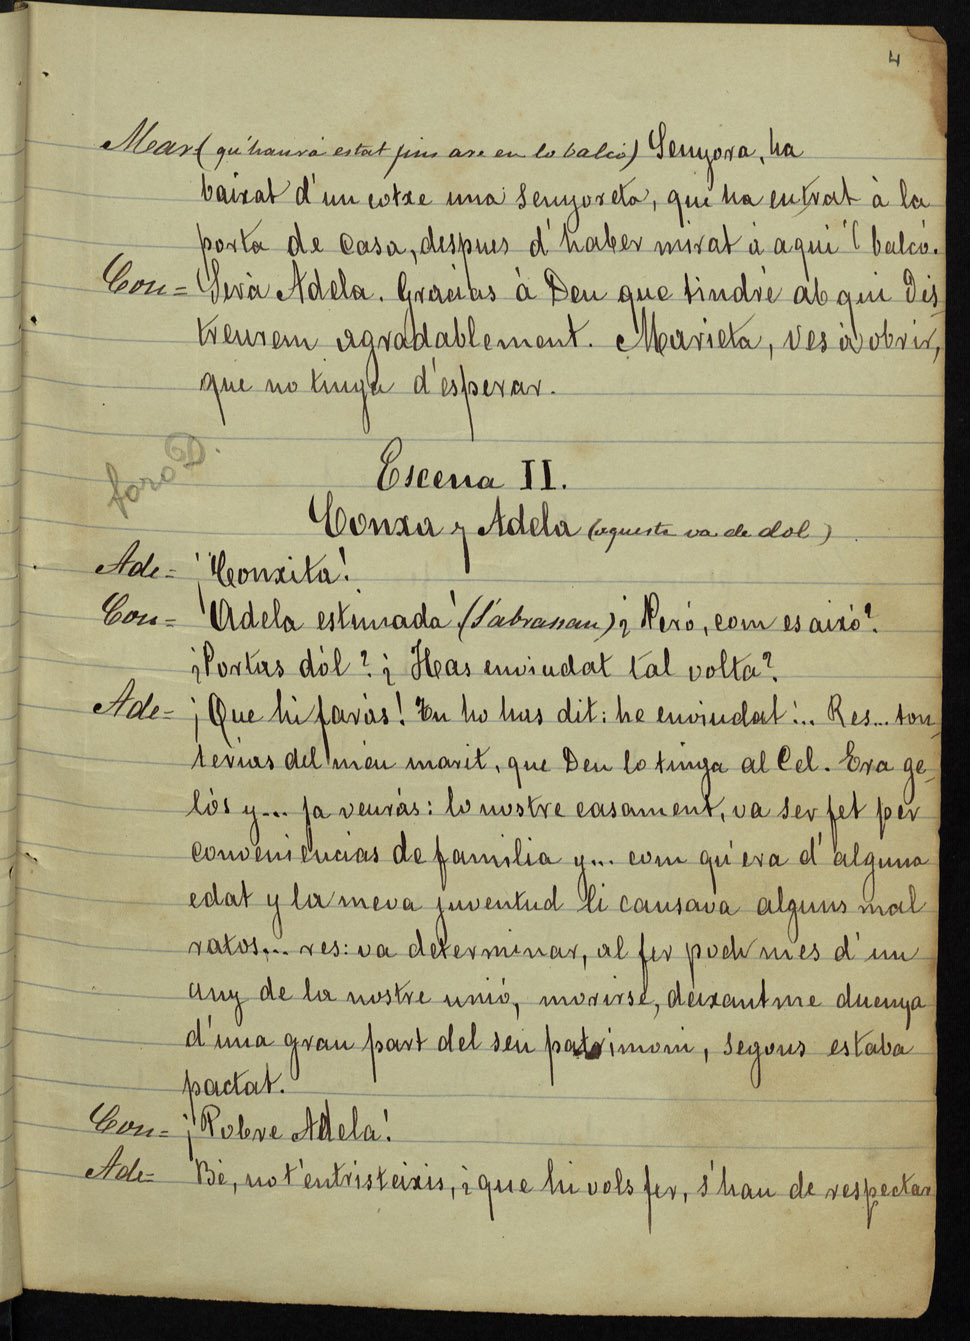 4
Mar-(qu'haurá estat fins are en lo balcó) Senyora, ha
baixat d'un cotxe una senyoreta, que ha entrat à la
porta de casa, despues d'haber mirat à aqui'l balcó.
Con= Serà Adela. Gracias à Deu que tindré ab qui dis-
treurem agradablement. Marieta, ves à obrir,
que no tinga d'esperar.
foro D.
Escena II.
Conxa y Adela (aquesta va de dol)
Ade= ¡Conxita!
Con= ¡Adela estimada! (S'abrassan) ¿Peró, com es aixó?
¿Portas dòl? ¿Has enviudat tal volta?
Ade= ¡Que hi farás! Tu ho has dit: he enviudat!.. Res... ton-
terias del meu marit, que Deu lo tinga al Cel. Era ge-
lós y... ja veurás: lo nostre casament, va ser fet per
conveniencias de familia y... com qu'era d'alguna
edat y la meva juventud li causava alguns mal
ratos... res: va determinar, al fer poch mes d'un
any de la nostre unió, morirse, deixantme duenya
d'una gran part del seu patrimoni, segons estaba
pactat.
Con= ¡Pobre Adela!
Ade= Bé, no t'entristeixis, ¿que hi vols fer, s'han de respectar